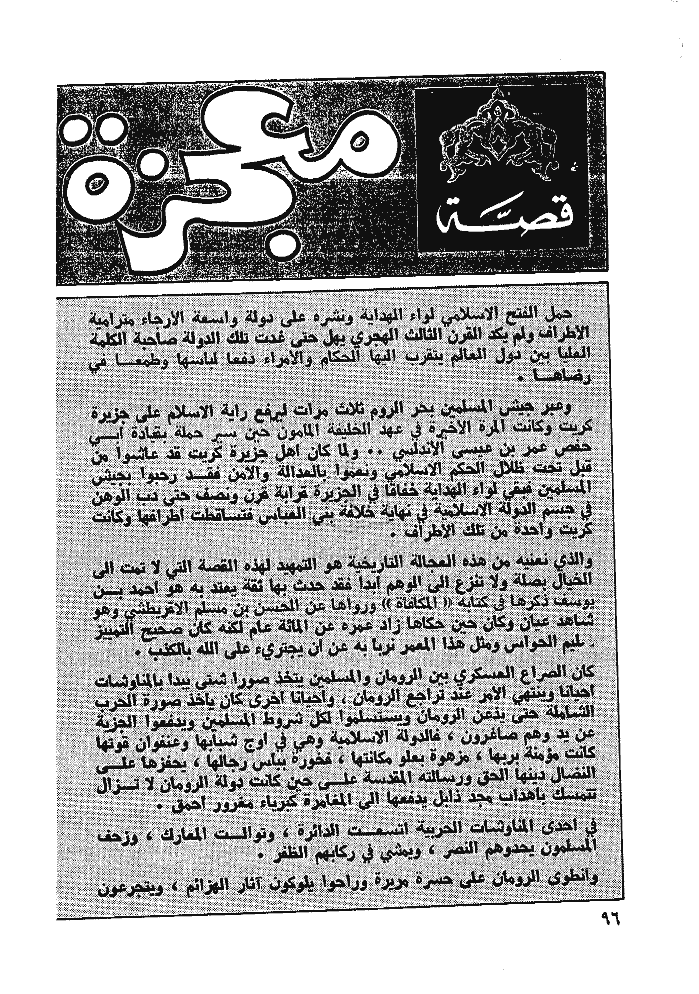 قصة
معجزة
حمل الفتح الاسلامي لواء الهداية ونشره على دولة واسعة الأرجاء مترامية
الأطراف ولم يكد القرن الثالث الهجري يهل حتى غدت تلك الدولة صاحبة الكلمة
العليا بين دول العالم يتقرب اليها الحكام والأمراء دفعا لبأسها وطمعـا في
رضاهـا .
وعبر جيش المسلمين بحر الروم ثلاث مرات ليرفع راية الاسلام على جزيرة
كريت وكانت المرة الأخيرة في عهد الخليفة المأمون حين سير حملة بقيادة أبـي
حفص عمر بن عيسى الأندلسي .. ولما كان أهل جزيرة كريت قد عاشوا من
قبل تحت ظلال الحكم الاسلامي ونعموا بالعدالة والأمن فقـد رحبوا بجيش
المسلمين فبقي لواء الهداية خفاقا في الجزيرة قرابة قرن ونصف حتى دب الوهن
في جسم الدولة الاسلامية في نهاية خلافة بني العباس فتساقطت أطرافها وكانت
كريت واحدة من تلك الأطراف .
والذي نعنيه من هذه العجالة التاريخية هو التمهيد لهذه القصة التي لا تمت الى
الخيال بصلة ولا تنزع الى الوهم أبدا فقد حدث بها ثقة يعتد به هو أحمد بـن
يوسف ذكرها في كتابه « المكافأة » ورواها عن الحسن بن مسلم الاقريطشي وهو
شاهد عيان وكان حين حكاها زاد عمره عن المائة عام لكنه كان صحيح التمييز
سليم الحواس ومثل هذا المعمر نربأ به عن أن يجترىء على الله بالكذب .
كان الصراع العسكري بين الرومان والمسلمين يتخذ صورا شتى يبدأ بالمناوشات
أحيانا وينتهي الأمر عند تراجع الرومان ، وأحيانا أخرى كان يأخذ صورة الحرب
الشاملة حتى يذعن الرومان ويستسلموا لكل شروط المسلمين ويدفعوا الجزية
عن يد وهم صاغرون ، فالدولة الاسلامية وهي في أوج شبابها وعنفوان قوتها
كانت مؤمنة بربها ، مزهوة بعلو مكانتها ، فخورة ببأس رجالها ، يحفزها علـى
النضال دينها الحق ورسالته المقدسة علـى حين كانت دولة الرومان لا تـزال
تتمسك بأهداب مجد ذابل يدفعها الى المغامرة كبرياء مغرور أحمق .
في احدى المناوشات الحربية اتسعـت الدائرة ، وتوالـت المعارك ، وزحف
المسلمون يحدوهم النصر ، ويمشي في ركابهم الظفر .
وانطوى الرومان على حسرة مريرة وراحوا يلوكون آثار الهزائم ، ويتجرعون
٩٦